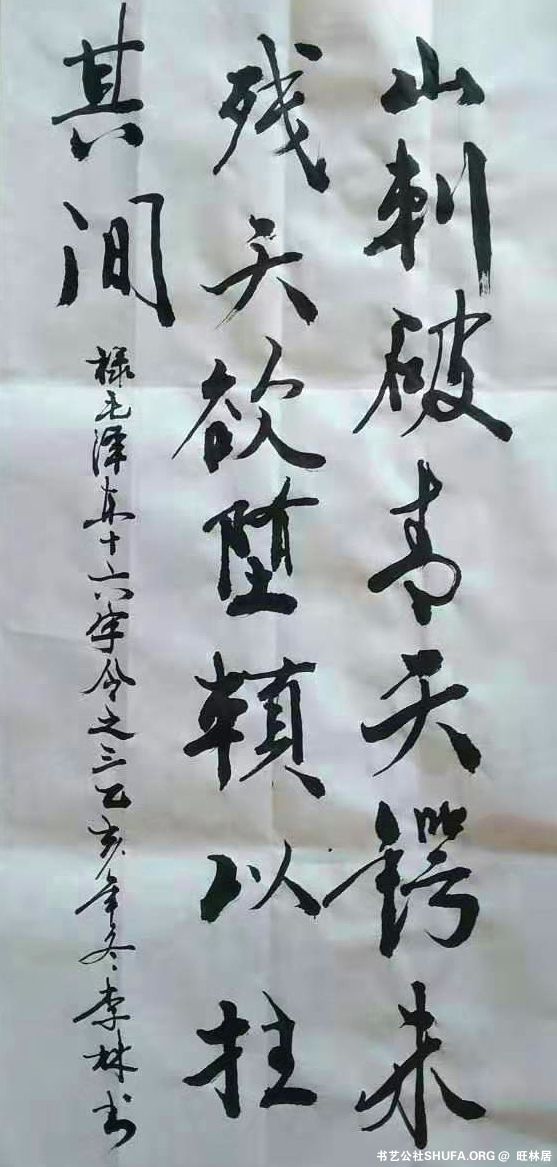 山刺破青天锷未
残天欲堕頼以拄
其间
毛泽东十六字令之三己亥年冬李林书
书艺公社SHUFA.ORG @ 旺林居